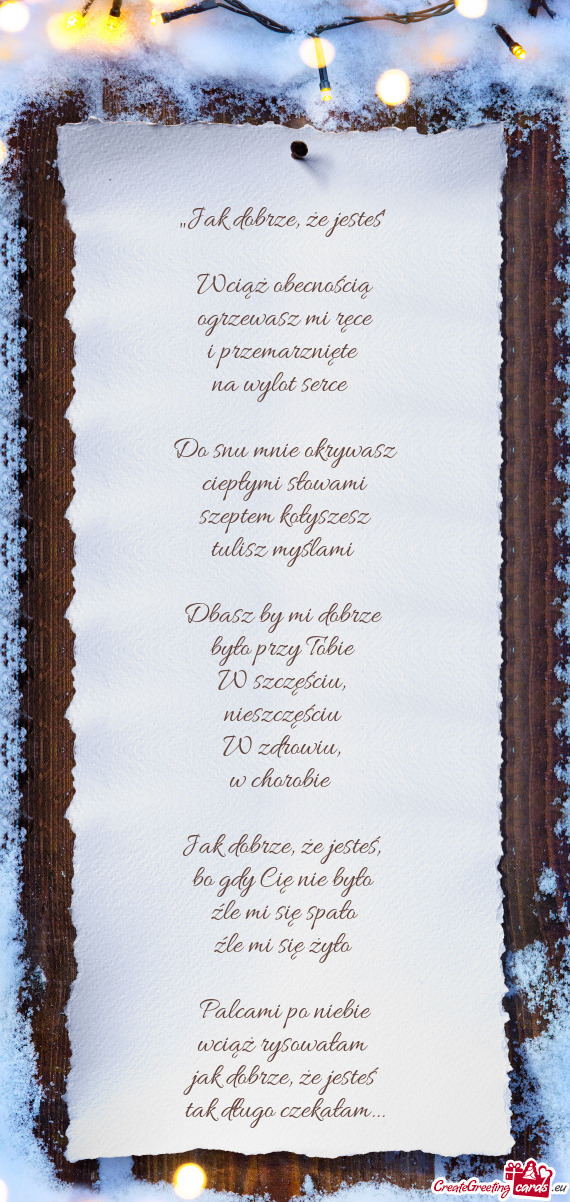 „Jak dobrze, że jesteś"
Wciąż obecnością
ogrzewasz mi ręce
i przemarznięte
na wylot serce
Do snu mnie okrywasz
ciepłymi słowami
szeptem kołyszesz
tulisz myślami
Dbasz by mi dobrze
było przy Tobie
W szczęściu,
nieszczęściu
W zdrowiu,
w chorobie
Jak dobrze, że jesteś,
bo gdy Cię nie było
źle mi się spało
źle mi się żyło
Palcami po niebie
wciąż rysowałam
jak dobrze, że jesteś
tak długo czekałam...
CreateGreetingcards.eu